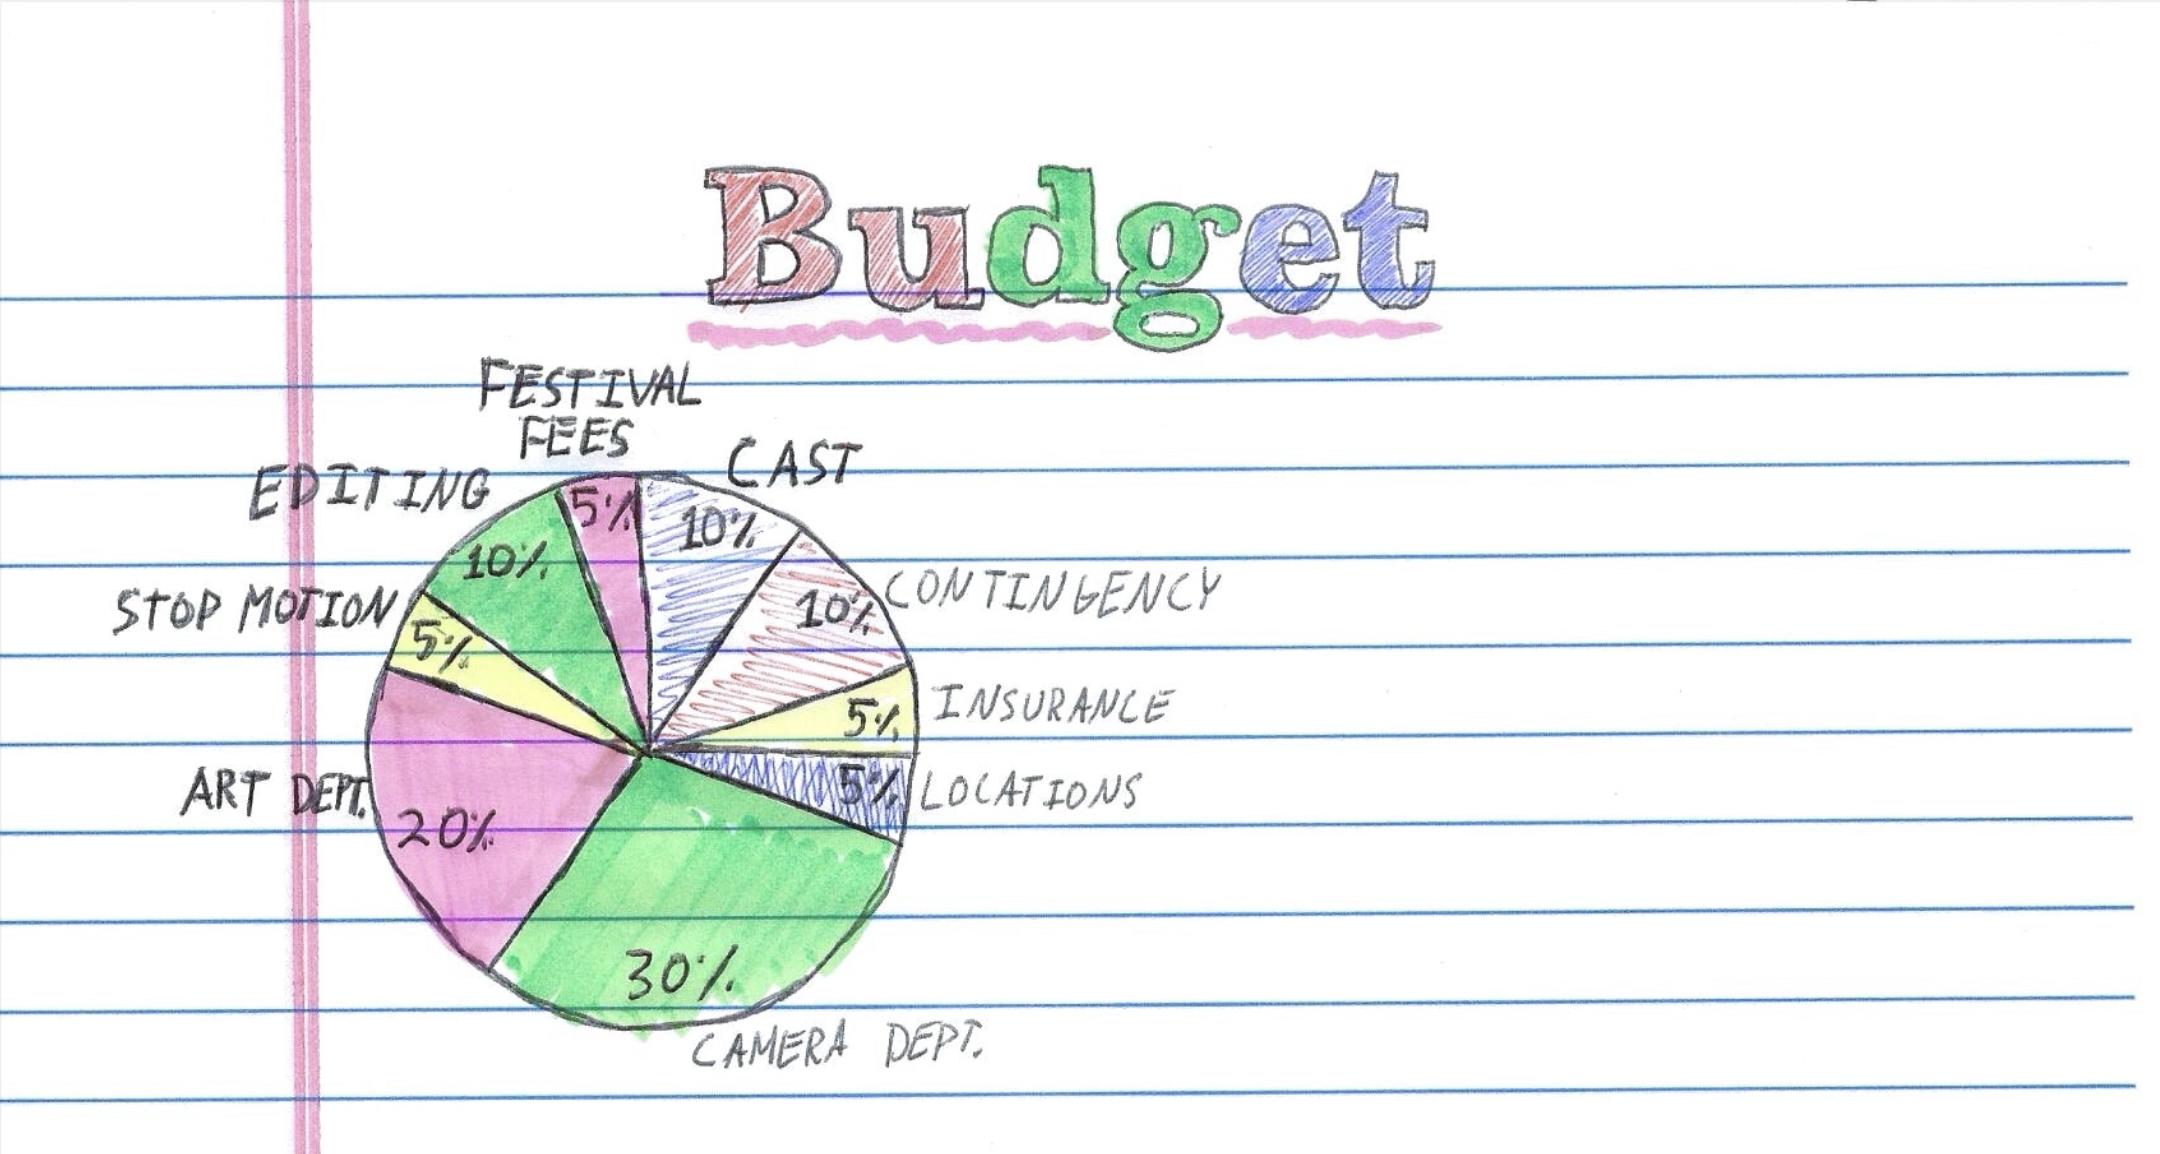 Budget
FESTIVAL
FEES
CAST
EDITING
5%
10%
10%
CONTINGENCY
STOP MOTION
10%
5%
INSURANCE
5%
LOCATIONS
5%
ART DEPT.
20%
30%
CAMERA DEPT.